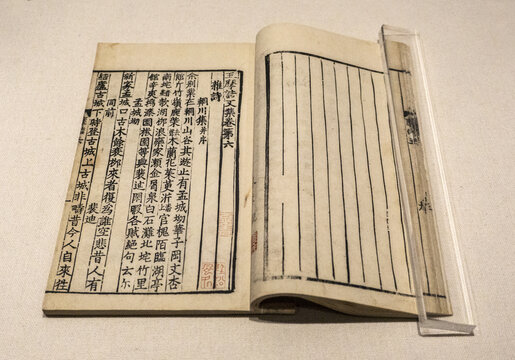 王摩詰文集卷第六
雜詩
輞川集并序
余別業在輞川山谷其遊止有孟城坳華子岡文杏
館斤竹嶺鹿柴木蘭花茱萸沜宮槐陌臨湖亭
南垞欹湖柳浪欒家瀨金屑泉白石灘北垞竹里
館辛夷塢漆園椒園等與裴迪閑暇各賦絕句云尒
孟城坳
新家孟城口古木餘衰柳來者復爲誰空悲昔人有
同前 裴迪
結廬古城下時登古城上古城非疇昔今人自來往